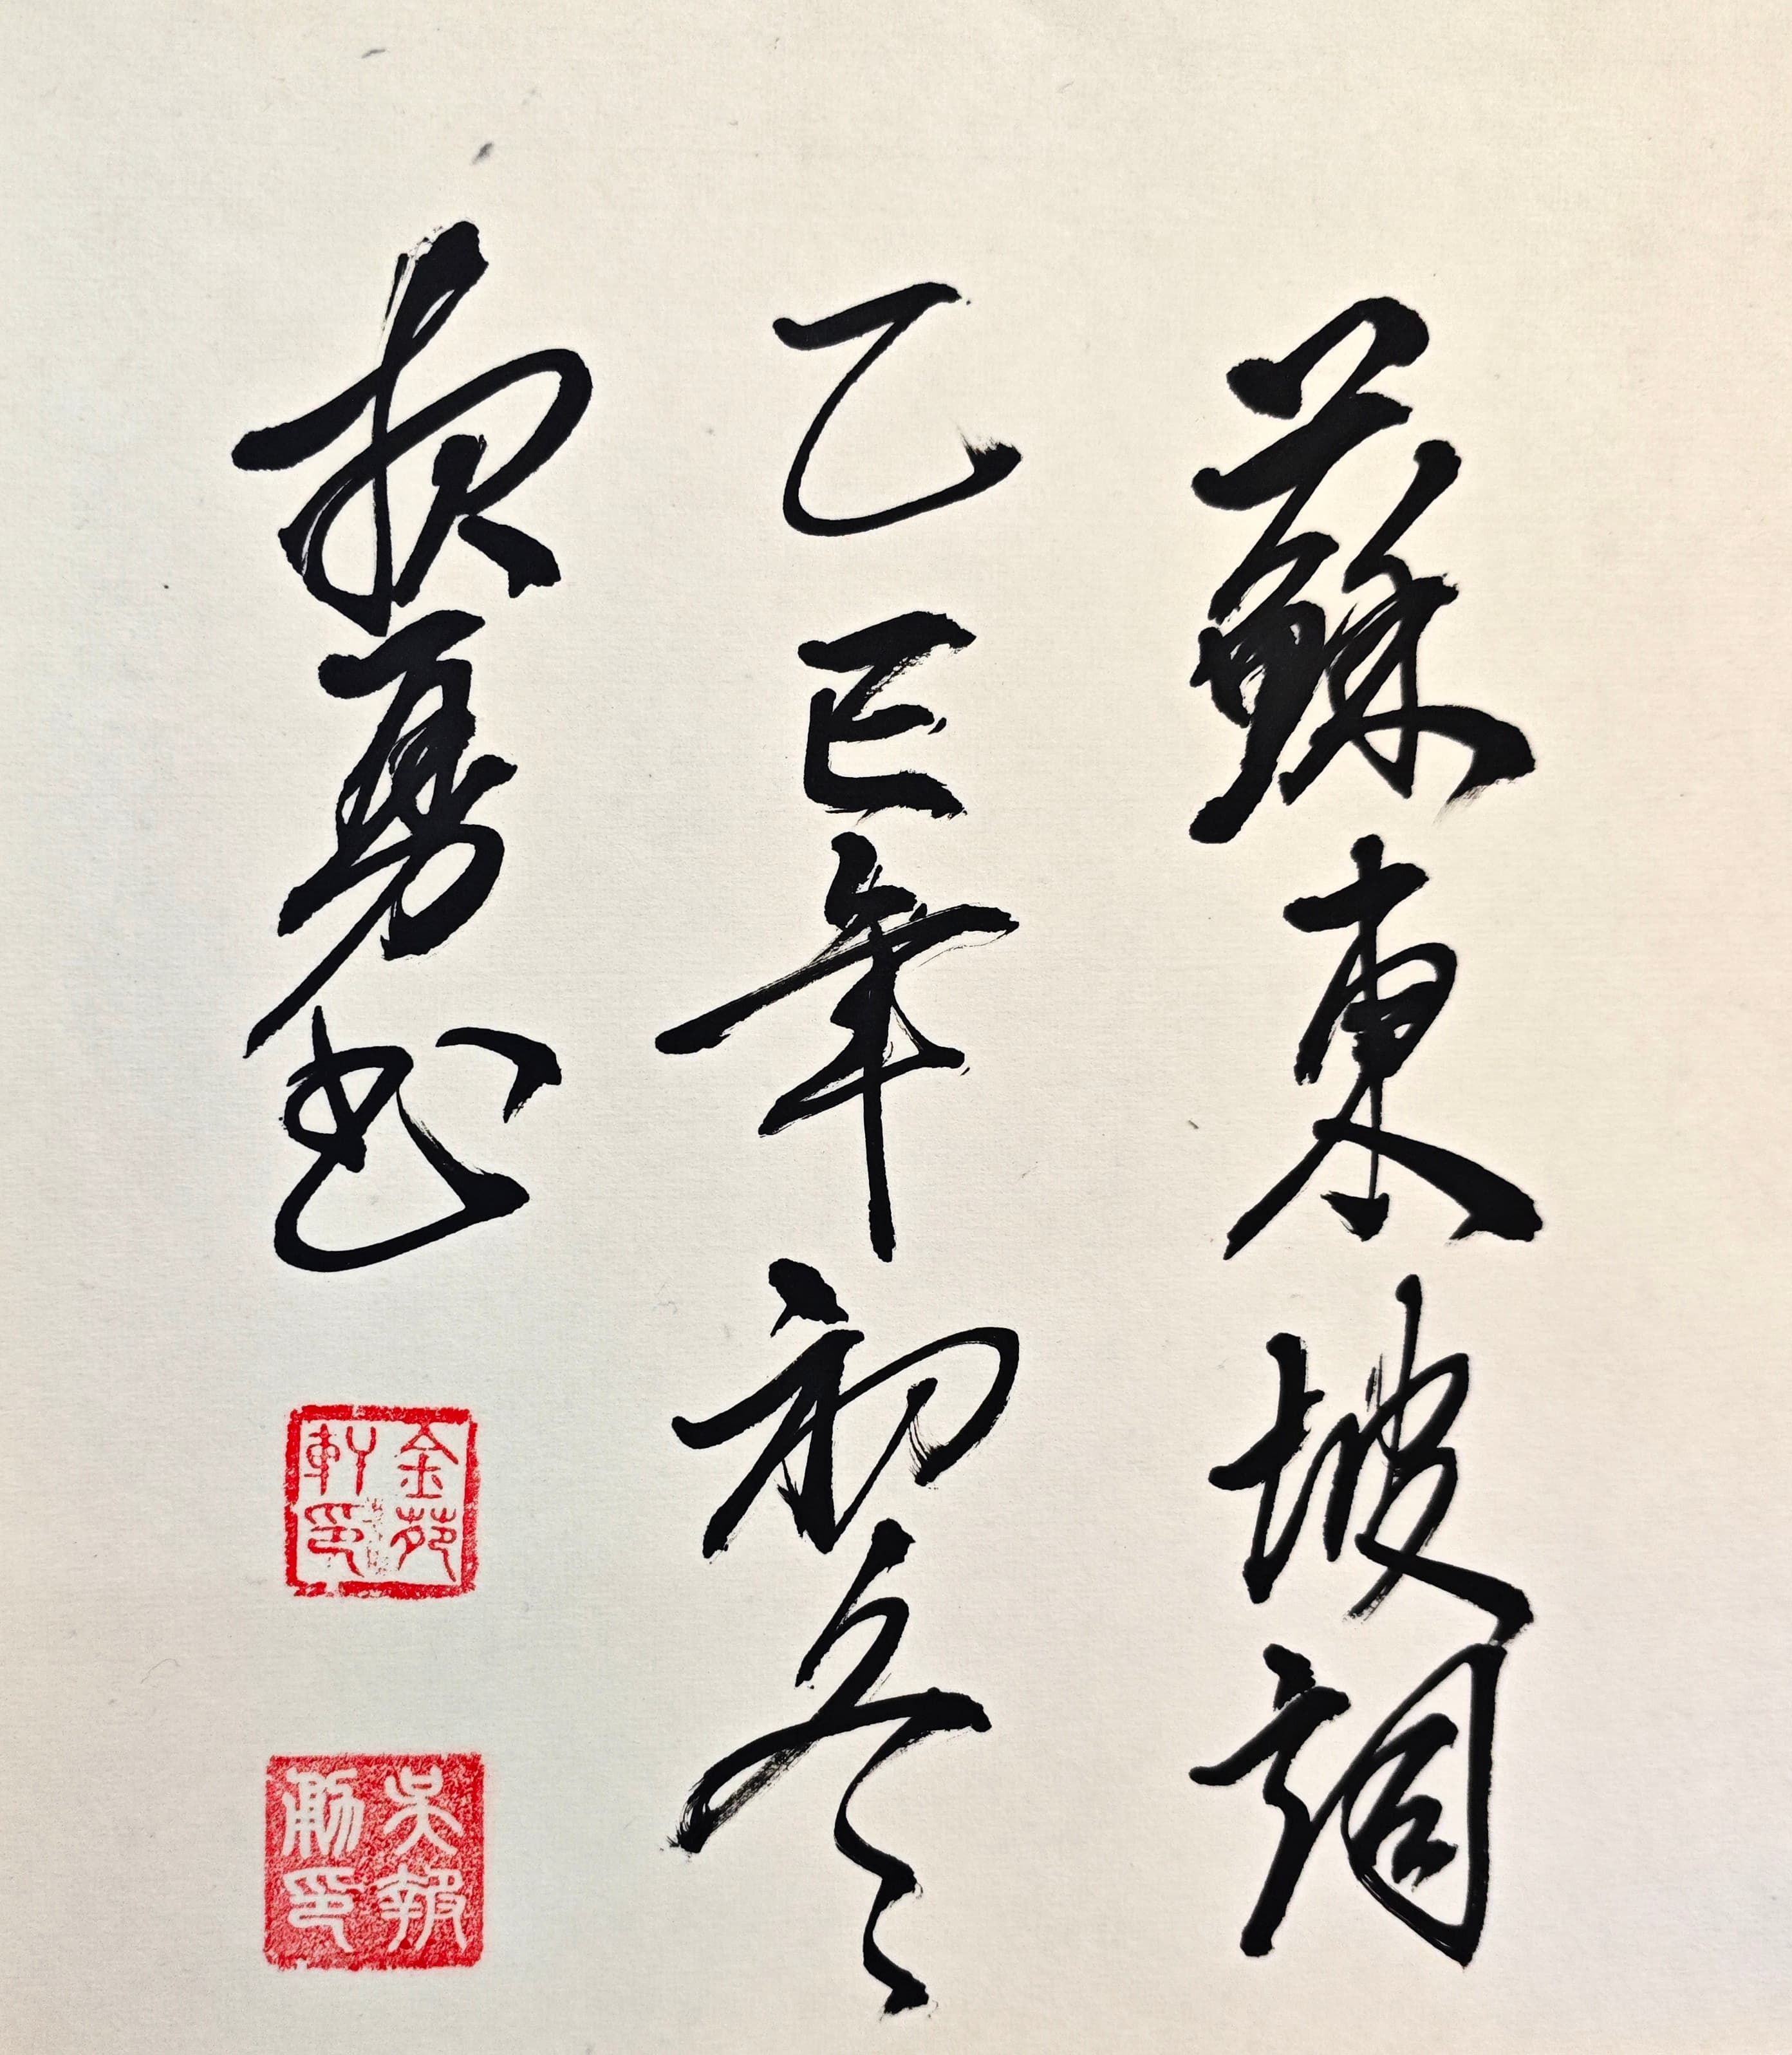 蘇東坡詞
乙巳年初冬
報勇書
金苑軒印
吳報勇印